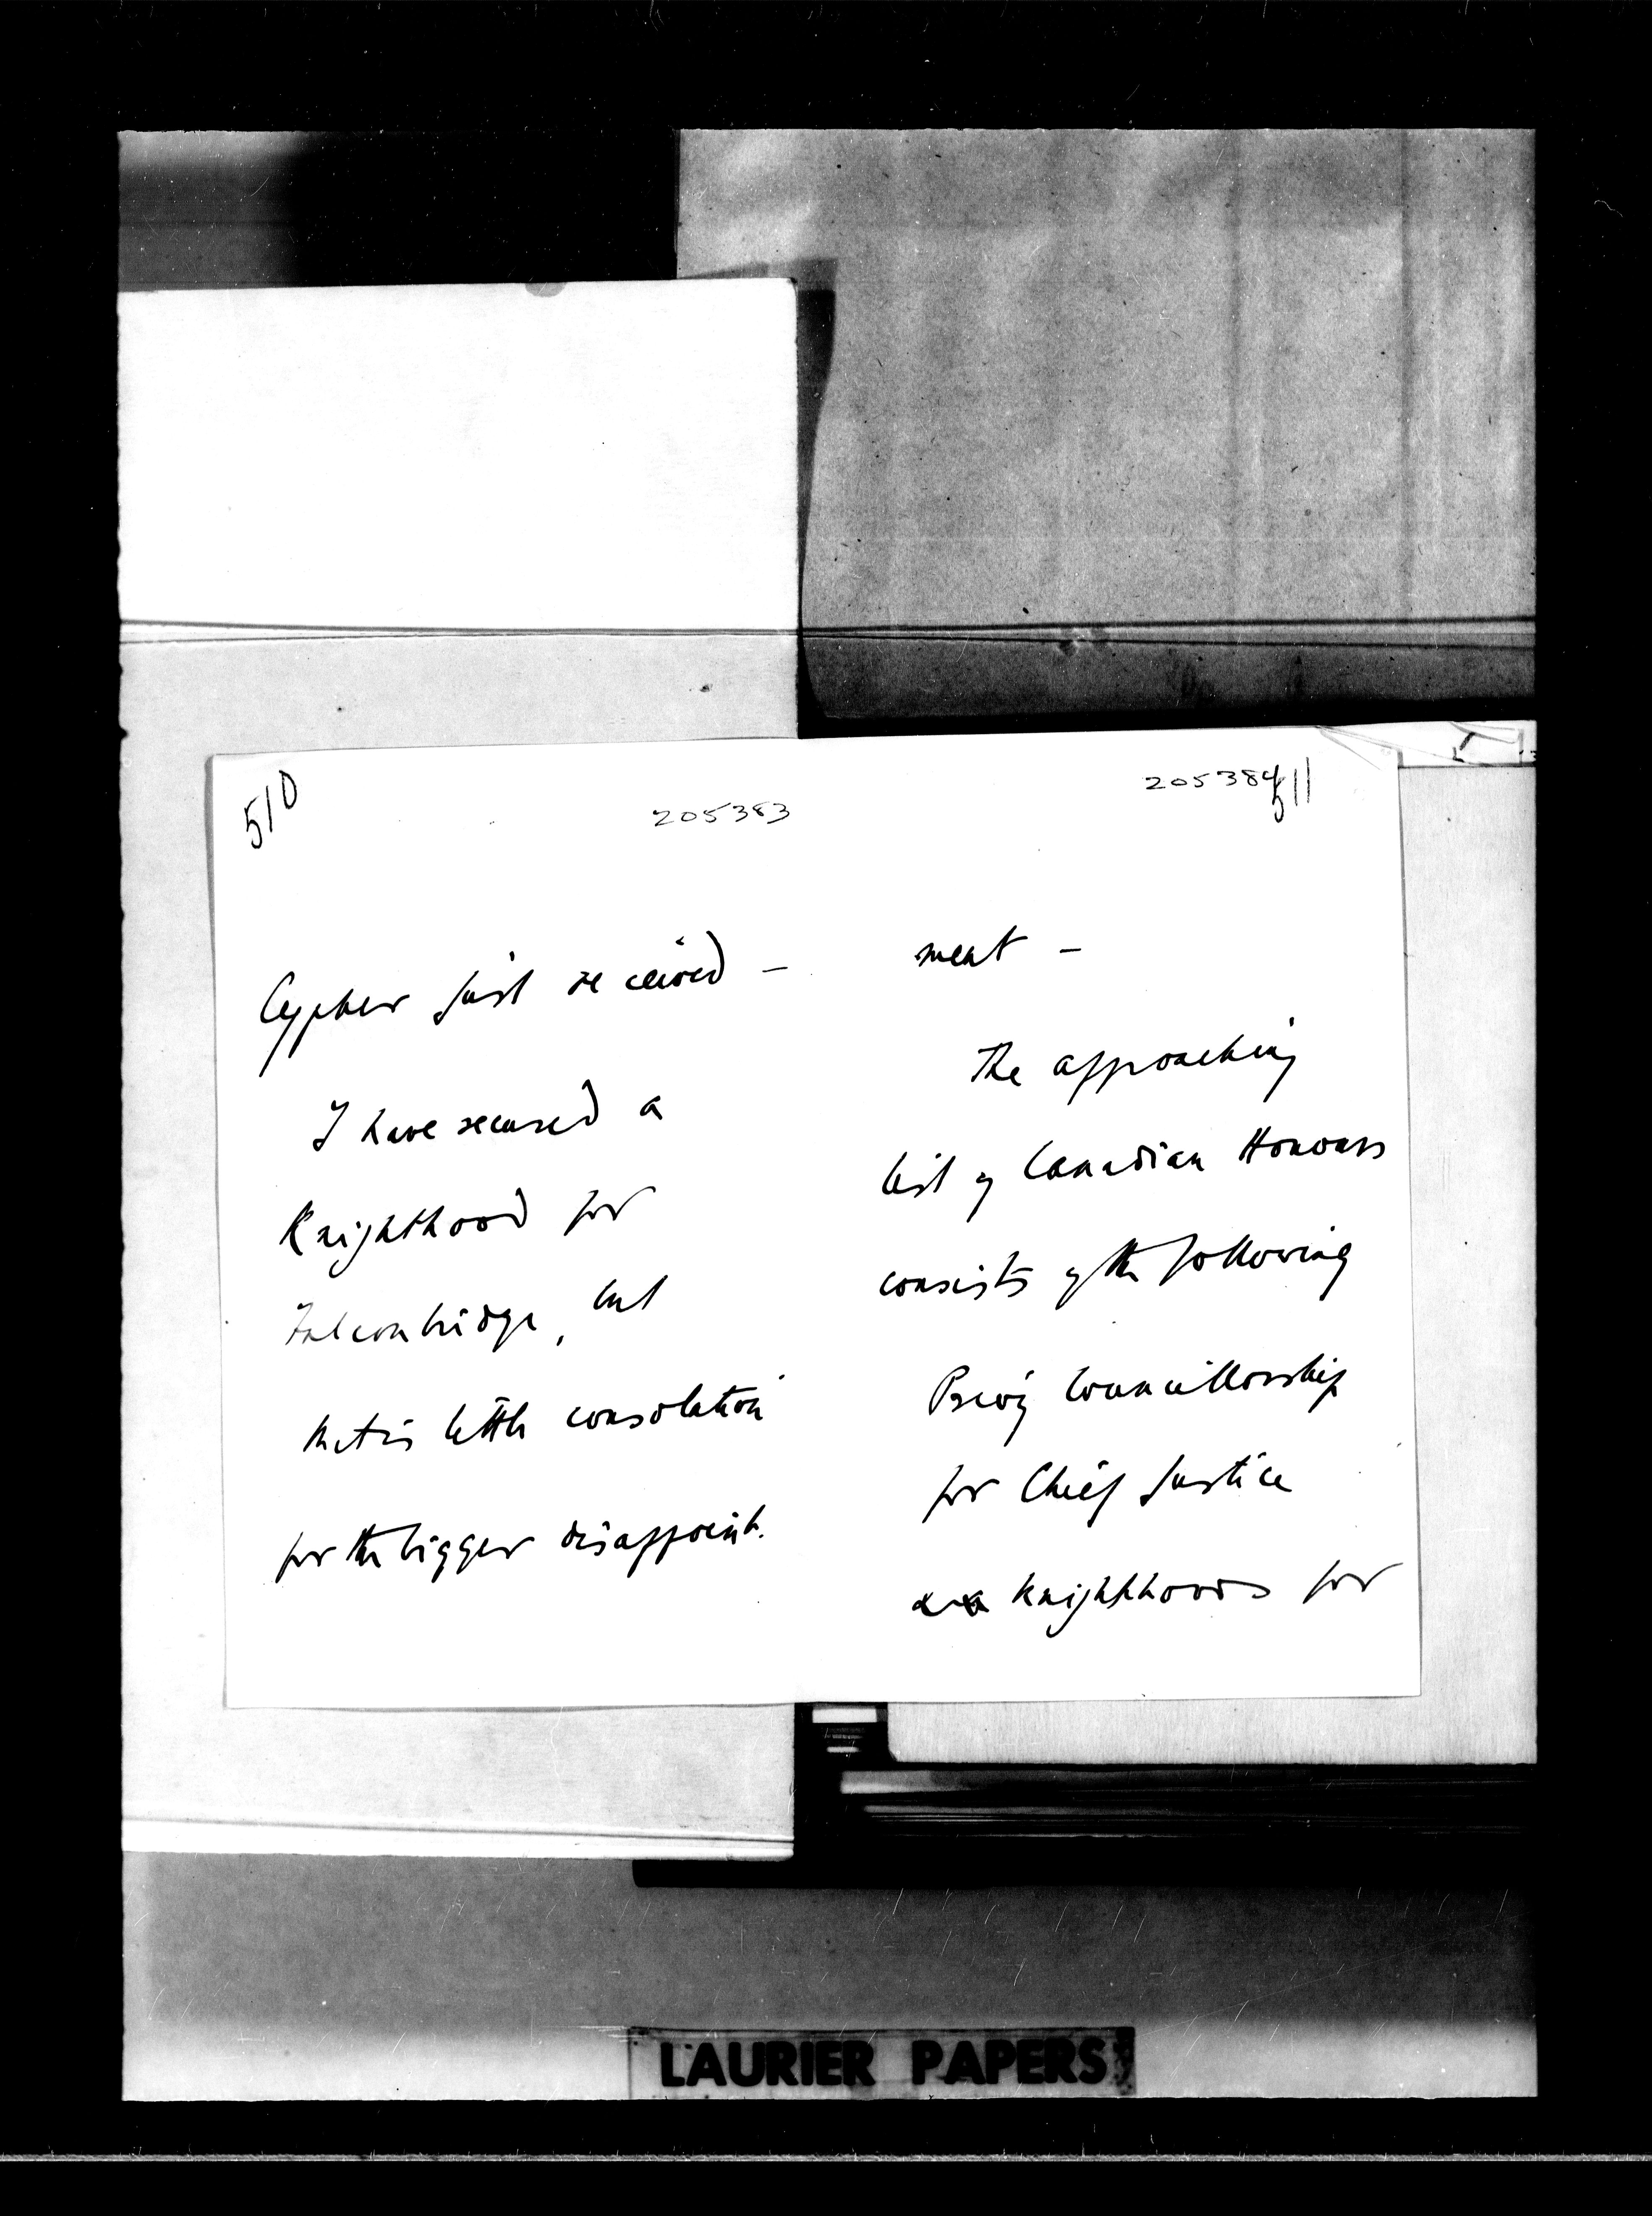 510
205383
Cypher just received –
I have secured a
Knighthood for
Falconbridge, but
that is little consolation
for the bigger disappoint-
205384
511
ment –
The approaching
list of Canadian Honours
consists of the following
Privy Councillorship
for Chief Justice
Knighthoods for
LAURIER PAPERS